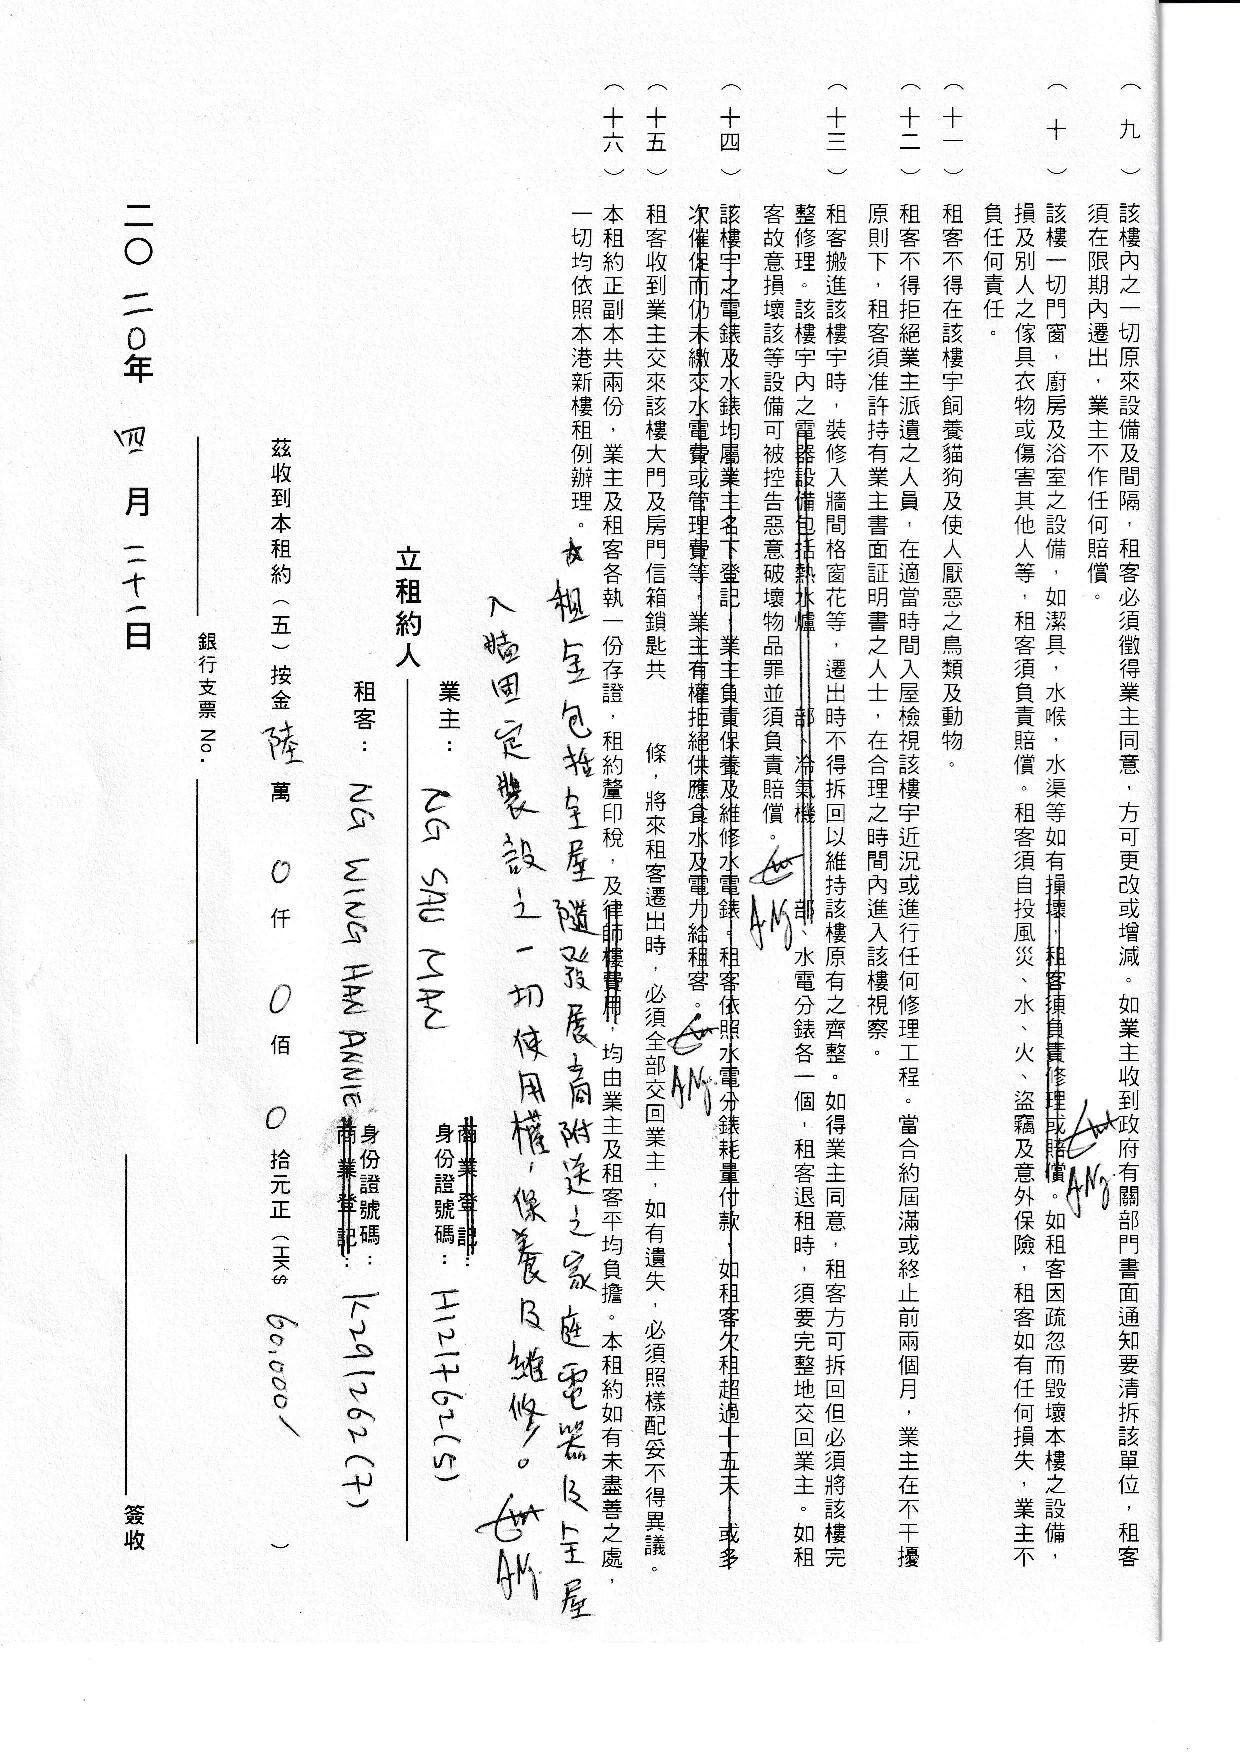 （九）該樓內之一切原來設備及間隔，租客必須徵得業主同意，方可更改或增減。如業主收到政府有關部門書面通知要清拆該單位，租客
須在限期內遷出，業主不作任何賠償。
（十）該樓一切門窗，廚房及浴室之設備，如潔具，水喉，水渠等如有損壞，租客須負責修理或賠償。如租客因疏忽而毀壞本樓之設備，
損及別人之傢具衣物或傷害其他人等，租客須負責賠償。租客須自投風災、水、火、盜竊及意外保險，租客如有任何損失，業主不
負任何責任。
（十一）租客不得在該樓宇飼養貓狗及使人厭惡之鳥類及動物。
（十二）租客不得拒絕業主派遺之人員，在適當時間入屋檢視該樓宇近況或進行任何修理工程。當合約屆滿或終止前兩個月，業主在不干擾
原則下，租客須准許持有業主書面証明書之人士，在合理之時間內進入該樓視察。
（十三）租客搬進該樓宇時，裝修入牆間格窗花等，遷出時不得拆回以維持該樓原有之齊整。如得業主同意，租客方可拆回但必須將該樓完
整修理。該樓宇內之電器設備包括熱水爐　　部、冷氣機　　部、水電分錶各一個，租客退租時，須要完整地交回業主。如租
客故意損壞該等設備可被控告惡意破壞物品罪並須負責賠償。 ANg
（十四）該樓宇之電錶及水錶均屬業主名下登記，業主負責保養及維修水電錶。租客依照水電分錶耗量付款，如租客欠租超過十五天，或多
次催促而仍未繳交水電費或管理費等，業主有權拒絕供應食水及電力給租客。 ANg
（十五）租客收到業主交來該樓大門及房門信箱鎖匙共　　條，將來租客遷出時，必須全部交回業主，如有遺失，必須照樣配妥不得異議。
（十六）本租約正副本共兩份，業主及租客各執一份存證，租約釐印稅，及律師樓費用，均由業主及租客平均負擔。本租約如有未盡善之處，
一切均依照本港新樓租例辦理。
ANg
租金包括全屋隨發展商附送之家庭電器及全屋
入牆固定裝設之一切使用權，保養及維修。 ANg
立租約人
業主：NG SAU MAN
商業登記：
身份證號碼：H121762(5)
租客：NG WING HAN ANNIE
身份證號碼：K291262(7)
商業登記：
茲收到本租約（五）按金陸萬0仟0佰0拾元正（HK$ 60,000/ ）
銀行支票 No.
二〇二0年四月二十一日
簽收